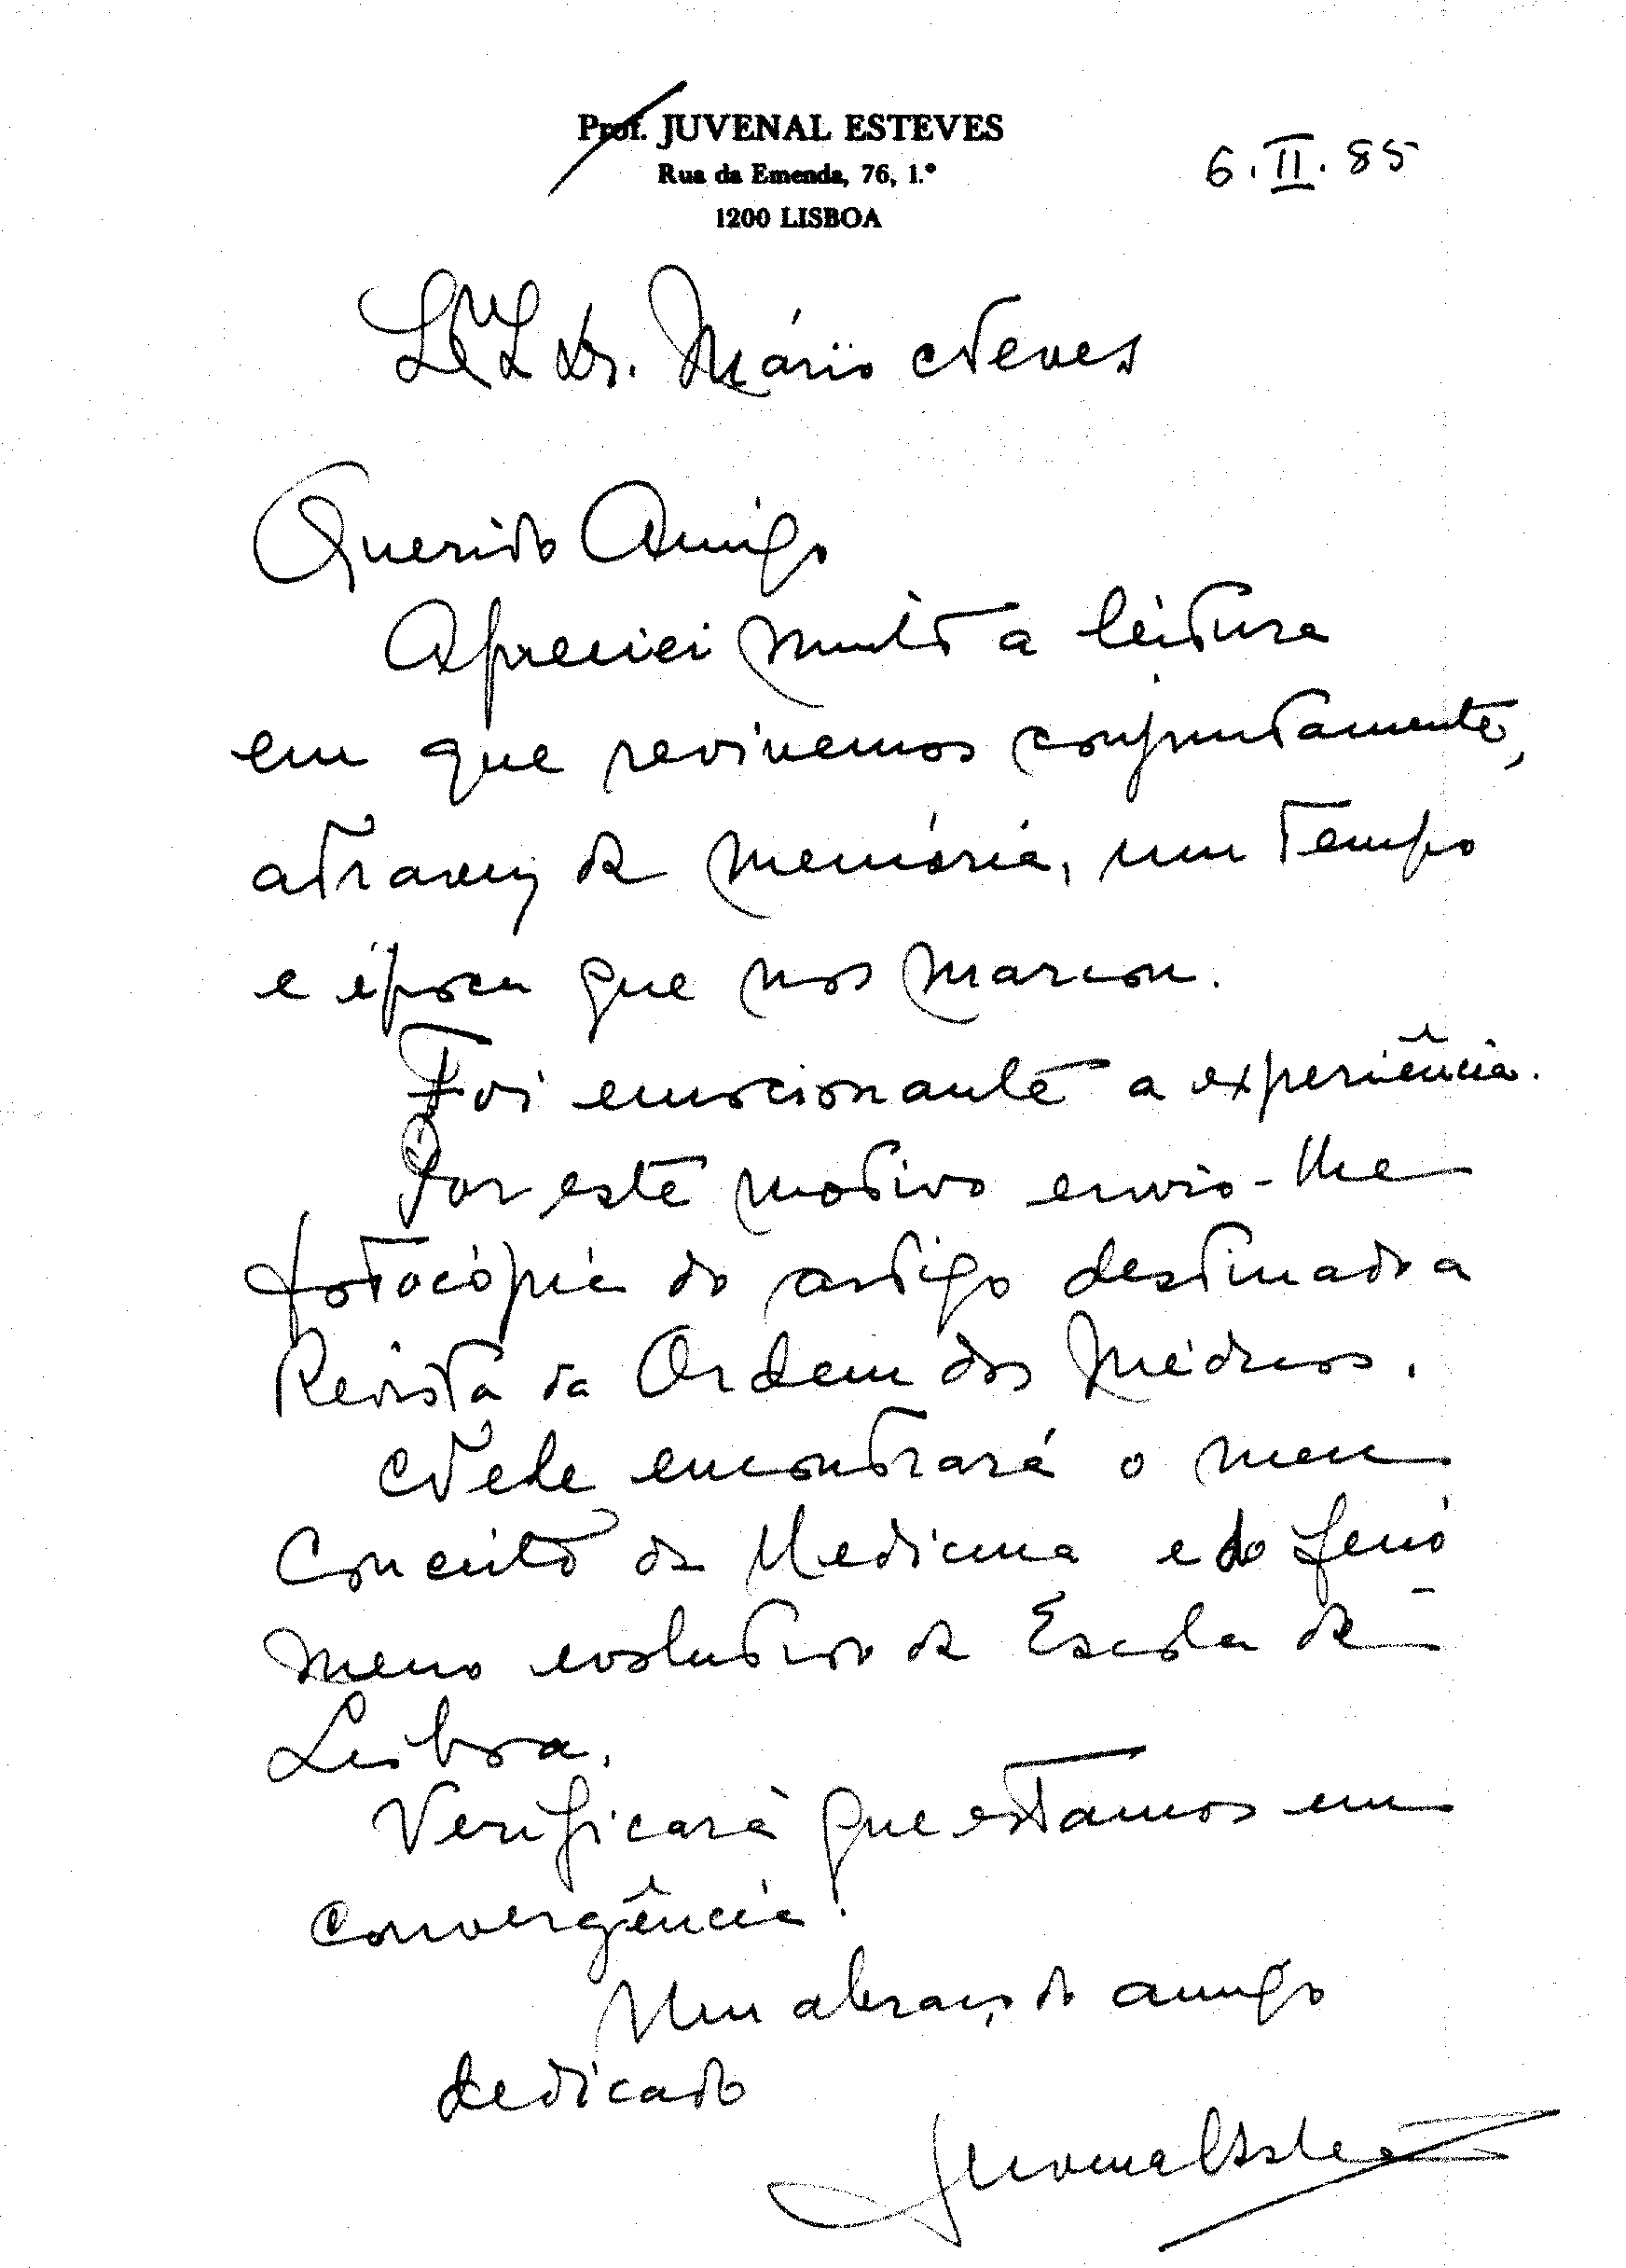 Prof. JUVENAL ESTEVES
Rua da Emenda, 76, 1.º
1200 LISBOA
6.II.85
Dr. Mário Neves
Querido Amigo
Apreciei muito a leitura
em que revivemos conjuntamente,
através da memória, um tempo
e época que nos marcou.
Foi emocionante a experiência.
Por este motivo envio-lhe
fotocópia do artigo destinado a
Revista da Ordem dos Médicos.
Nele encontrará o meu
Conceito da Medicina e do fenó
meno evolutivo da Escola de
Lisboa.
Verificará que estamos em
convergência!
Um abraço do amigo
dedicado
Juvenal Esteves